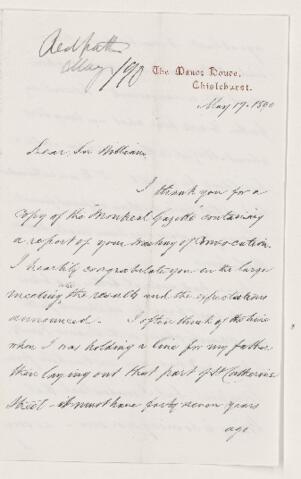 Redpath
May /90
The Manor House,
Chislehurst.
May 19. 1890
Dear Sir William,
I thank you for a
copy of the "Montreal Gazette" containing
a report of your meeting of Convocation.
I heartily congratulate you on the large
meeting, the results and the
announced. I often think of the time
when I was holding a line for my father
then laying out that part of St Catherine
Street – it must have forty seven years
ago